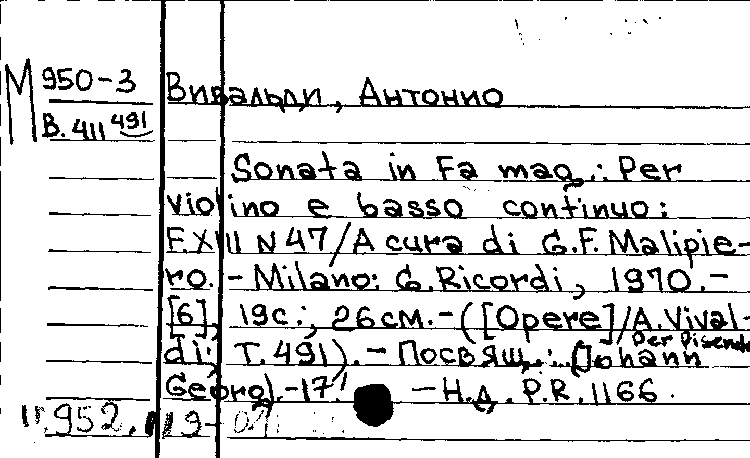 М 950-3
В. 411 491
Вивальди, Антонио
Sonata in Fa mag.: Per
violino e basso continuo:
F.XIII N 47/A cura di G.F. Malipie-
ro. - Milano: G. Ricordi, 1970. -
[6], 19с.; 26см. - ([Opere]/A. Vival-
di; Т. 491). - Посвящ.: Per Pisendel
(Johann
Georg). - 17. - Н.д. P.R. 1166.
952. 119-